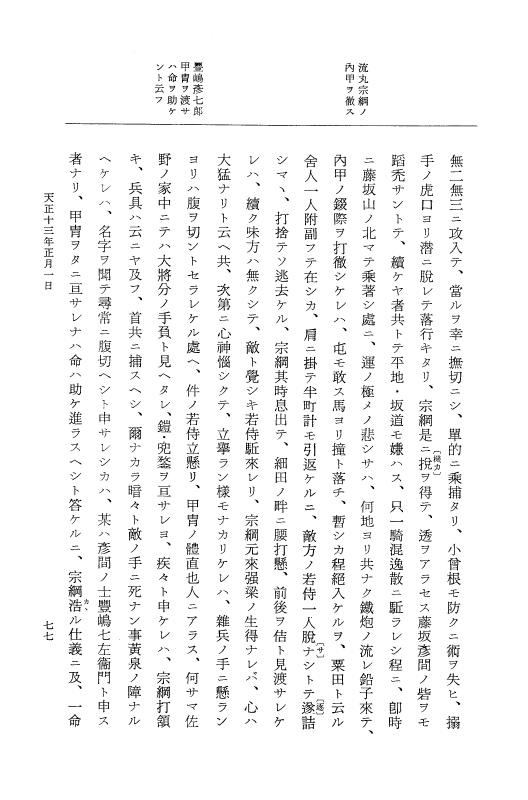 流丸宗綱ノ
內甲ヲ徹ス
豐嶋彥七郎
甲冑ヲ渡サ
ハ命ヲ助ケ
ント云フ
無二無三ニ攻入テ、當ルヲ幸ニ撫切ニシ、單的ニ乘捕タリ、小曾根モ防クニ術ヲ失ヒ、搦
手ノ虎口ヨリ潛ニ脫レテ落行キタリ、宗綱是ニ捝ヲ得テ、透ヲアラセス藤坂彥間ノ砦ヲモ
〔機カ〕
蹈禿サントテ、續ケヤ者共トテ平地・坂道モ嫌ハス、只一騎混逸散ニ駈ラレシ程ニ、卽時
ニ藤坂山ノ北マテ乘著シ處ニ、運ノ極メノ悲シサハ、何地ヨリ共ナク鐵炮ノ流レ鉛子來テ、
內甲ノ錣際ヲ打徹シケレハ、屯モ敢ス馬ヨリ撞ト落チ、暫シカ程絕入ケルヲ、粟田ト云ル
舍人一人附副フテ在シカ、肩ニ掛テ半町計モ引返ケルニ、敵方ノ若侍一人脫ナシトテ遂詰
〔サ〕
〔逐〕
シマヽ、打捨テソ逃去ケル、宗綱其時息出テ、細田ノ畔ニ腰打懸、前後ヲ佶ト見渡サレケ
レハ、續ク味方ハ無クシテ、敵ト覺シキ若侍駈來レリ、宗綱元來强梁ノ生得ナレバ、心ハ
大猛ナリト云ヘ共、次第ニ心神惱シクテ、立擧ラン樣モナカリケレハ、雜兵ノ手ニ懸ラン
ヨリハ腹ヲ切ントセラレケル處ヘ、件ノ若侍立懸リ、甲冑ノ體直也人ニアラス、何サマ佐
野ノ家中ニテハ大將分ノ手負ト見ヘタレ、鎧・兜鍪ヲ亘サレヨ、疾々ト申ケレハ、宗綱打領
キ、兵具ハ云ニヤ及フ、首共ニ捕スヘシ、爾ナカラ暗々ト敵ノ手ニ死ナン事黃泉ノ障ナル
ヘケレハ、名字ヲ聞テ尋常ニ腹切ヘシト申サレシカハ、某ハ彥間ノ士豐嶋七左衞門ト申ス
者ナリ、甲冑ヲタニ亘サレナハ命ハ助ケ進ラスヘシト答ケルニ、宗綱浩ル仕義ニ及、一命
カヽ
天正十三年正月一日
七七